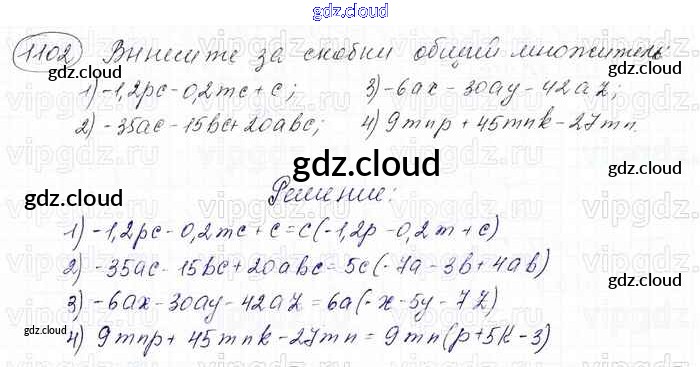 gdz.cloud
1102 Вынесите за скобки общий множитель:
gdz.cloud gdz.cloud
1) -1,2pc - 0,2mc + c; 3) -6ax - 30ay - 42az;
2) -35ac - 15bc + 20abc; 4) 9mnp + 45mnk - 27mn.
gdz.cloud
gdz.cloud Решение: gdz.cloud
1) -1,2pc - 0,2mc + c = c(-1,2p - 0,2m + c)
2) -35ac - 15bc + 20abc = 5c(-7a - 3b + 4ab)
3) -6ax - 30ay - 42az = 6a(-x - 5y - 7z)
gdz.cloud gdz.cloud
4) 9mnp + 45mnk - 27mn = 9mn(p + 5k - 3)